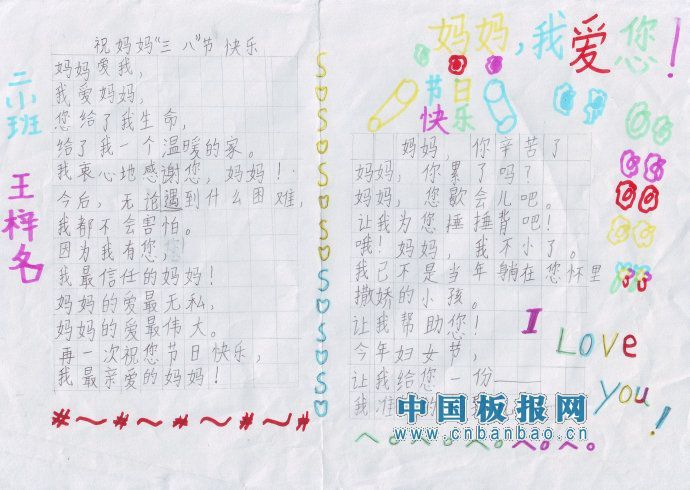 祝妈妈"三八"节快乐
妈妈爱我，
我爱妈妈，
您给了我生命，
给了我一个温暖的家。
我衷心地感谢您，妈妈！
今后，无论遇到什么困难，
我都不会害怕。
因为我有您，
我最信任的妈妈！
妈妈的爱最无私，
妈妈的爱最伟大。
再一次祝您节日快乐，
我最亲爱的妈妈！
二小班
王梓名
妈妈，我爱您！
节日
快乐
妈妈 你辛苦了
妈妈，你累了吗？
妈妈，您歇会儿吧。
让我为您捶捶背吧！
哦！妈妈，我不小了。
我已不是当年躺在您怀里
撒娇的小孩。
让我帮助您！
今年妇女节，
让我给您一份——
我准
的
I
Love
You!
中国板报网
www.cnbanbao.cn